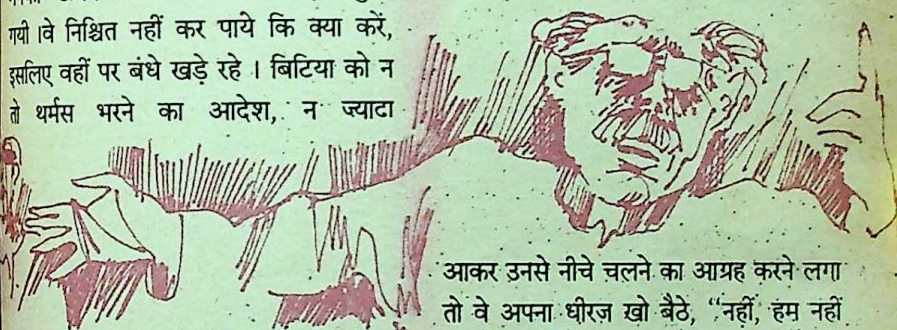 गयी ।वे निश्चित नहीं कर पाये कि क्या करें,
इसलिए वहीं पर बंधे खड़े रहे । बिटिया को न
तो थर्मस भरने का आदेश, न ज्यादा
आकर उनसे नीचे चलने का आग्रह करने लगा
तो वे अपना धीरज़ खो बैठे, “नहीं, हम नहीं